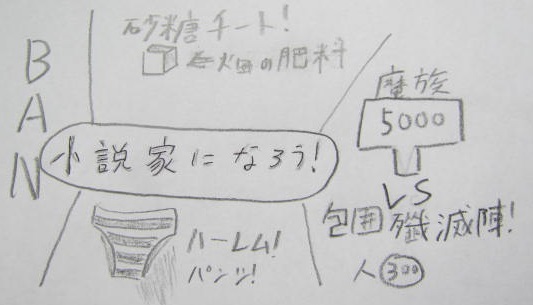 砂糖チート!
⇐畑の肥料
BAN
小説家になろう!
魔族
5000
VS
包囲殲滅陣!
人300
ハーレム!
パンツ!